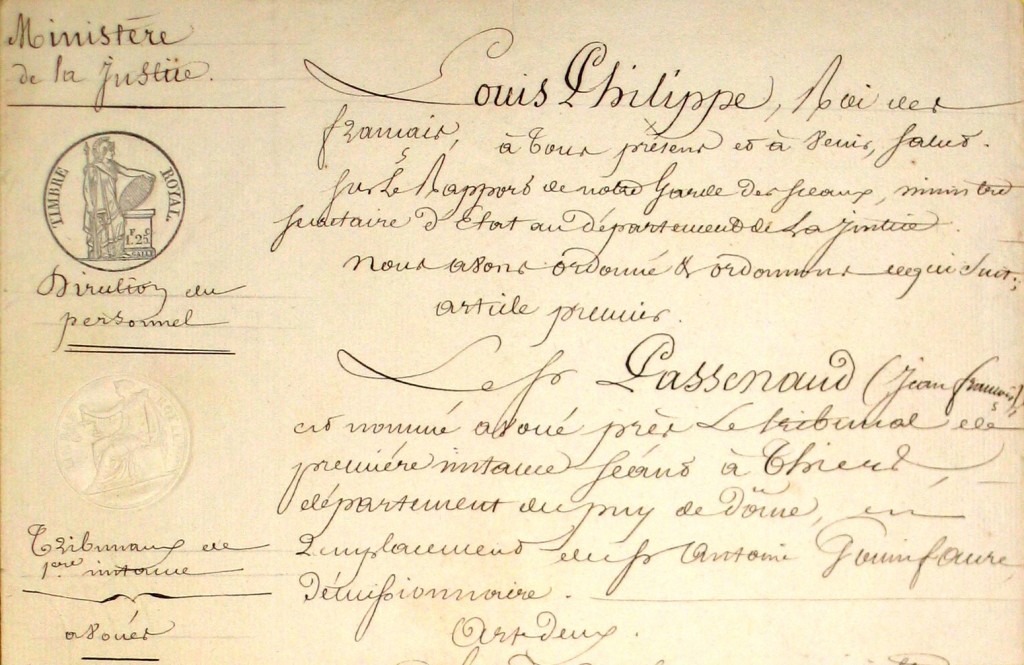 Ministère
de la Justice.
TIMBRE ROYAL
F. C.
1.25
Direction du
personnel
Tribunaux de
1ère instance
avoués
Louis Philippe, Roi des
français, à tous présens et à venir, salut.
sur Le Rapport de notre Garde des sceaux, ministre
secrétaire d'Etat au département de La justice.
nous avons ordonné & ordonnons ce qui suit;
article premier.
Le Sr Passenaud (jean françois)
est nommé avoué près Le tribunal de
première instance séant à Thiers
département du puy de Dôme, en
Remplacement du Sr Antoine
Démissionnaire.
Art. Deux.